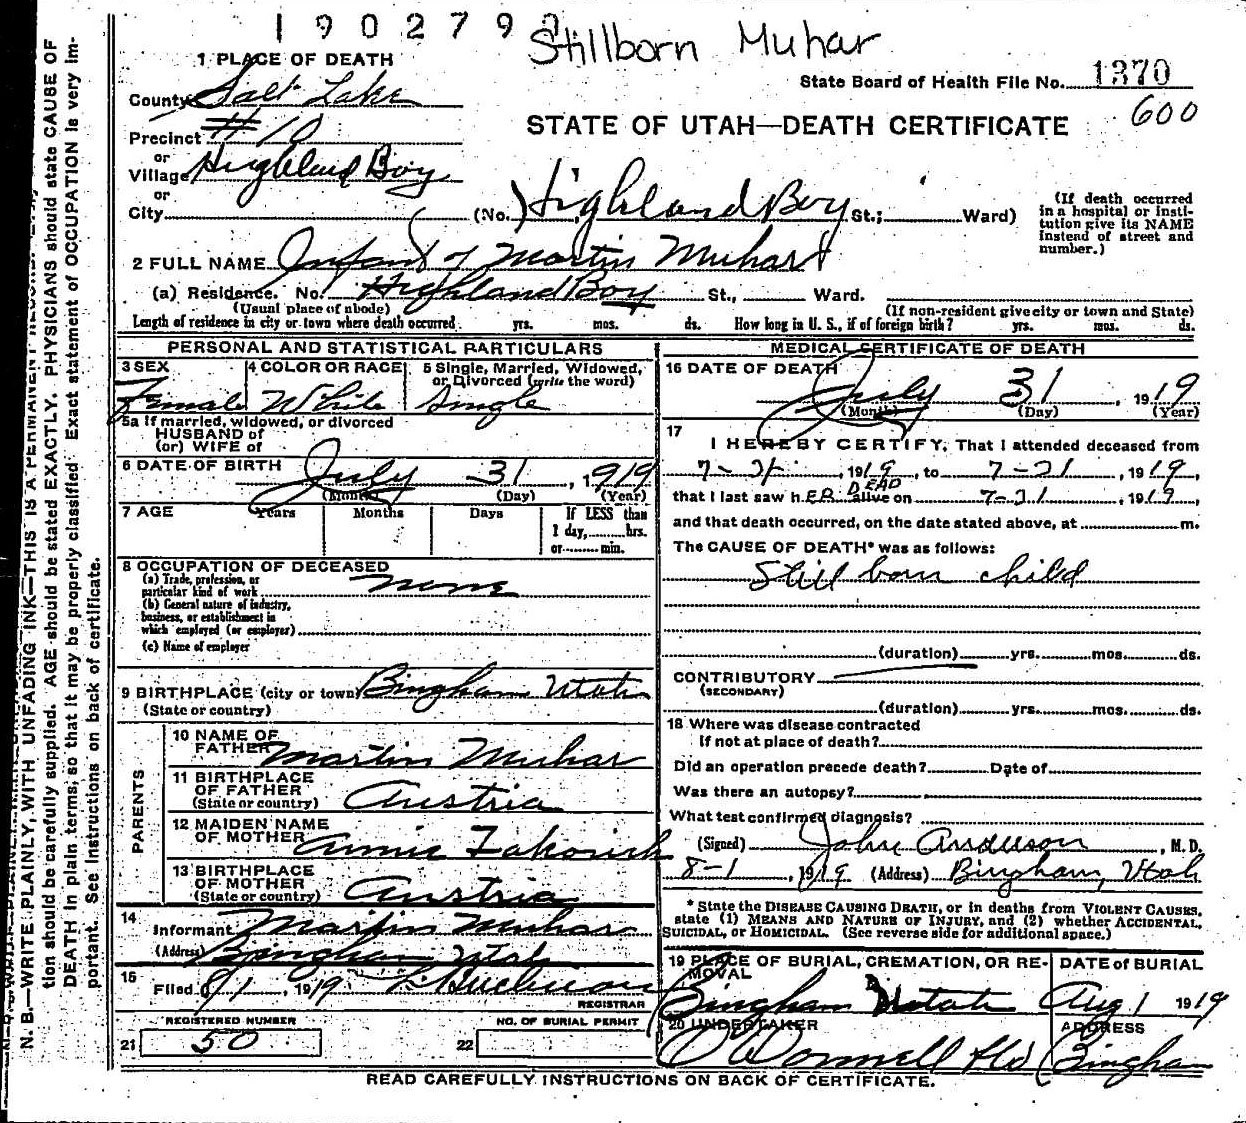 190279
Stillborn Muhar
1 PLACE OF DEATH
State Board of Health File No. 1370
600
County Salt Lake
STATE OF UTAH—DEATH CERTIFICATE
Precinct #10
or
Village Highland Boy
or
City (No. Highland Boy St.; Ward)
(If death occurred in a hospital or insti-
tution give its NAME
instead of street and
number.)
2 FULL NAME Infant of Martin Muhar
(a) Residence. No. Highland Boy St., Ward.
(Usual place of abode) (If non-resident give city or town and State)
Length of residence in city or town where death occurred yrs. mos. ds. How long in U. S., if of foreign birth? yrs. mos. ds.
PERSONAL AND STATISTICAL PARTICULARS
3 SEX 4 COLOR OR RACE 5 Single, Married, Widowed,
or Divorced (write the word)
Female White Single
5a If married, widowed, or divorced
HUSBAND of
(or) WIFE of
6 DATE OF BIRTH July 31, 1919
(Month) (Day) (Year)
7 AGE Years Months Days If LESS than
1 day, hrs.
or min.
8 OCCUPATION OF DECEASED
(a) Trade, profession, or
particular kind of work none
(b) General nature of industry,
business, or establishment in
which employed (or employer)
(c) Name of employer
9 BIRTHPLACE (city or town) Bingham Utah
(State or country)
PARENTS
10 NAME OF
FATHER Martin Muhar
11 BIRTHPLACE
OF FATHER
(State or country) Austria
12 MAIDEN NAME
OF MOTHER Annie
13 BIRTHPLACE
OF MOTHER
(State or country) Austria
14
Informant Martin Muhar
(Address) Bingham Utah
15
Filed 1919
REGISTRAR
REGISTERED NUMBER NO. OF BURIAL PERMIT
21 50 22
MEDICAL CERTIFICATE OF DEATH
16 DATE OF DEATH
July 31, 1919
(Month) (Day) (Year)
17
I HEREBY CERTIFY, That I attended deceased from
7-31, 1919, to 7-31, 1919,
that I last saw hER DEAD alive on 7-31, 1919,
and that death occurred, on the date stated above, at m.
The CAUSE OF DEATH* was as follows:
Still born child
(duration) yrs. mos. ds.
CONTRIBUTORY
(SECONDARY)
(duration) yrs. mos. ds.
18 Where was disease contracted
If not at place of death?
Did an operation precede death? Date of
Was there an autopsy?
What test confirmed diagnosis?
(Signed) John Anderson, M. D.
8-1, 1919 (Address) Bingham, Utah
* State the DISEASE CAUSING DEATH, or in deaths from VIOLENT CAUSES,
state (1) MEANS AND NATURE OF INJURY, and (2) whether ACCIDENTAL,
SUICIDAL, or HOMICIDAL. (See reverse side for additional space.)
19 PLACE OF BURIAL, CREMATION, OR RE-
MOVAL DATE of BURIAL
Bingham Utah Aug 1 1919
20 UNDERTAKER ADDRESS
O'Donnell Bingham
READ CAREFULLY INSTRUCTIONS ON BACK OF CERTIFICATE.
N. B.—WRITE PLAINLY, WITH UNFADING INK—THIS IS A PERMANENT
tion should be carefully supplied. AGE should be stated EXACTLY. PHYSICIANS should state CAUSE OF
DEATH in plain terms, so that it may be properly classified. Exact statement of OCCUPATION is very im-
portant. See Instructions on back of certificate.